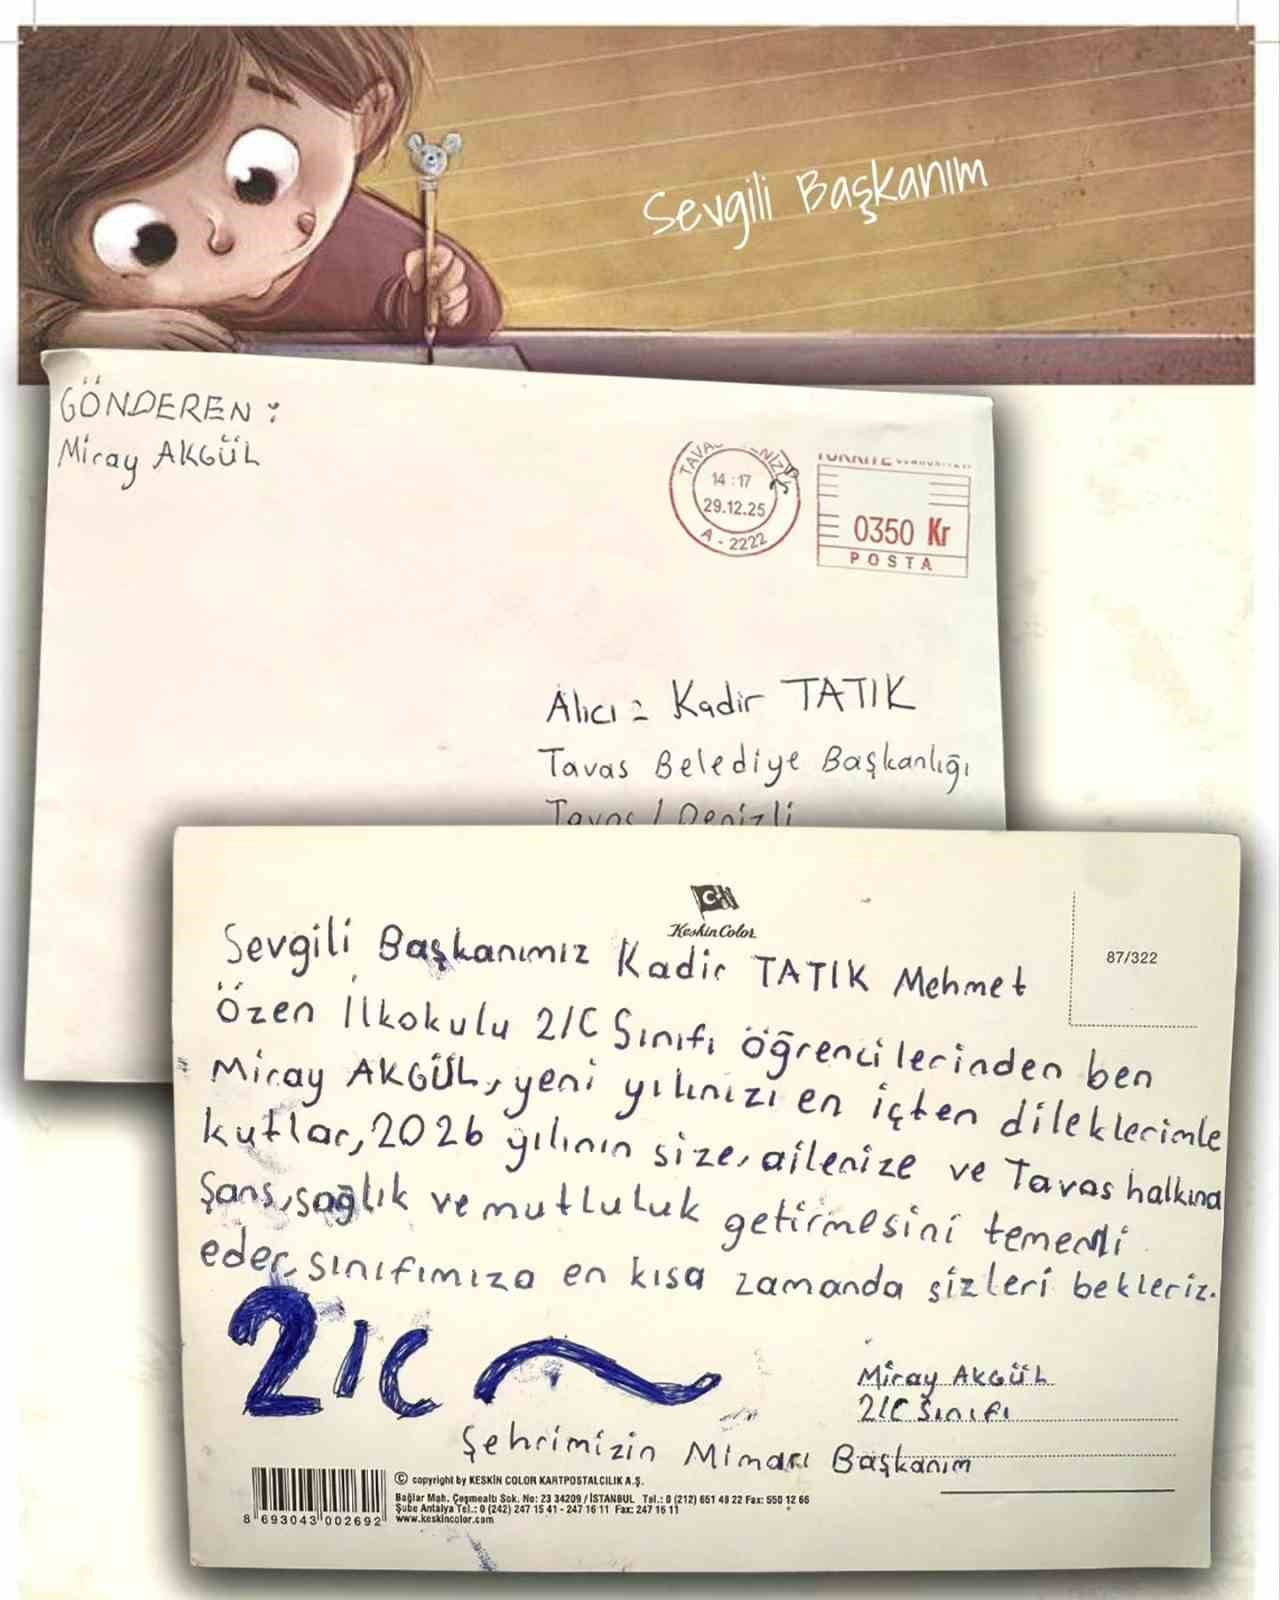 Sevgili Başkanım
GÖNDEREN :
Miray AKGÜL
14:17
29.12.25
A - 2222
0350 Kr
POSTA
Alıcı = Kadir TATIK
Tavas Belediye Başkanlığı
Tavas / Denizli
KeskinColor
87/322
Sevgili Başkanımız Kadir TATIK Mehmet
Özen İlkokulu 2/C Sınıfı öğrencilerinden ben
Miray AKGÜL, yeni yılınızı en içten dileklerimle
kutlar, 2026 yılının size, ailenize ve Tavas halkına
şans, sağlık ve mutluluk getirmesini temenni
eder, sınıfımıza en kısa zamanda sizleri bekleriz.
2/C
Miray AKGÜL
2/C Sınıfı
Şehrimizin Mimarı Başkanım
© copyright by KESKİN COLOR KARTPOSTALCILIK A.Ş.
Bağlar Mah. Çeşmealtı Sok. No: 23 34209 / İSTANBUL Tel.: 0 (212) 651 48 22 Fax: 550 12 66
Şube Antalya Tel.: 0 (242) 247 15 41 - 247 16 11 Fax: 247 16 11
www.keskincolor.com
8 693043 002692